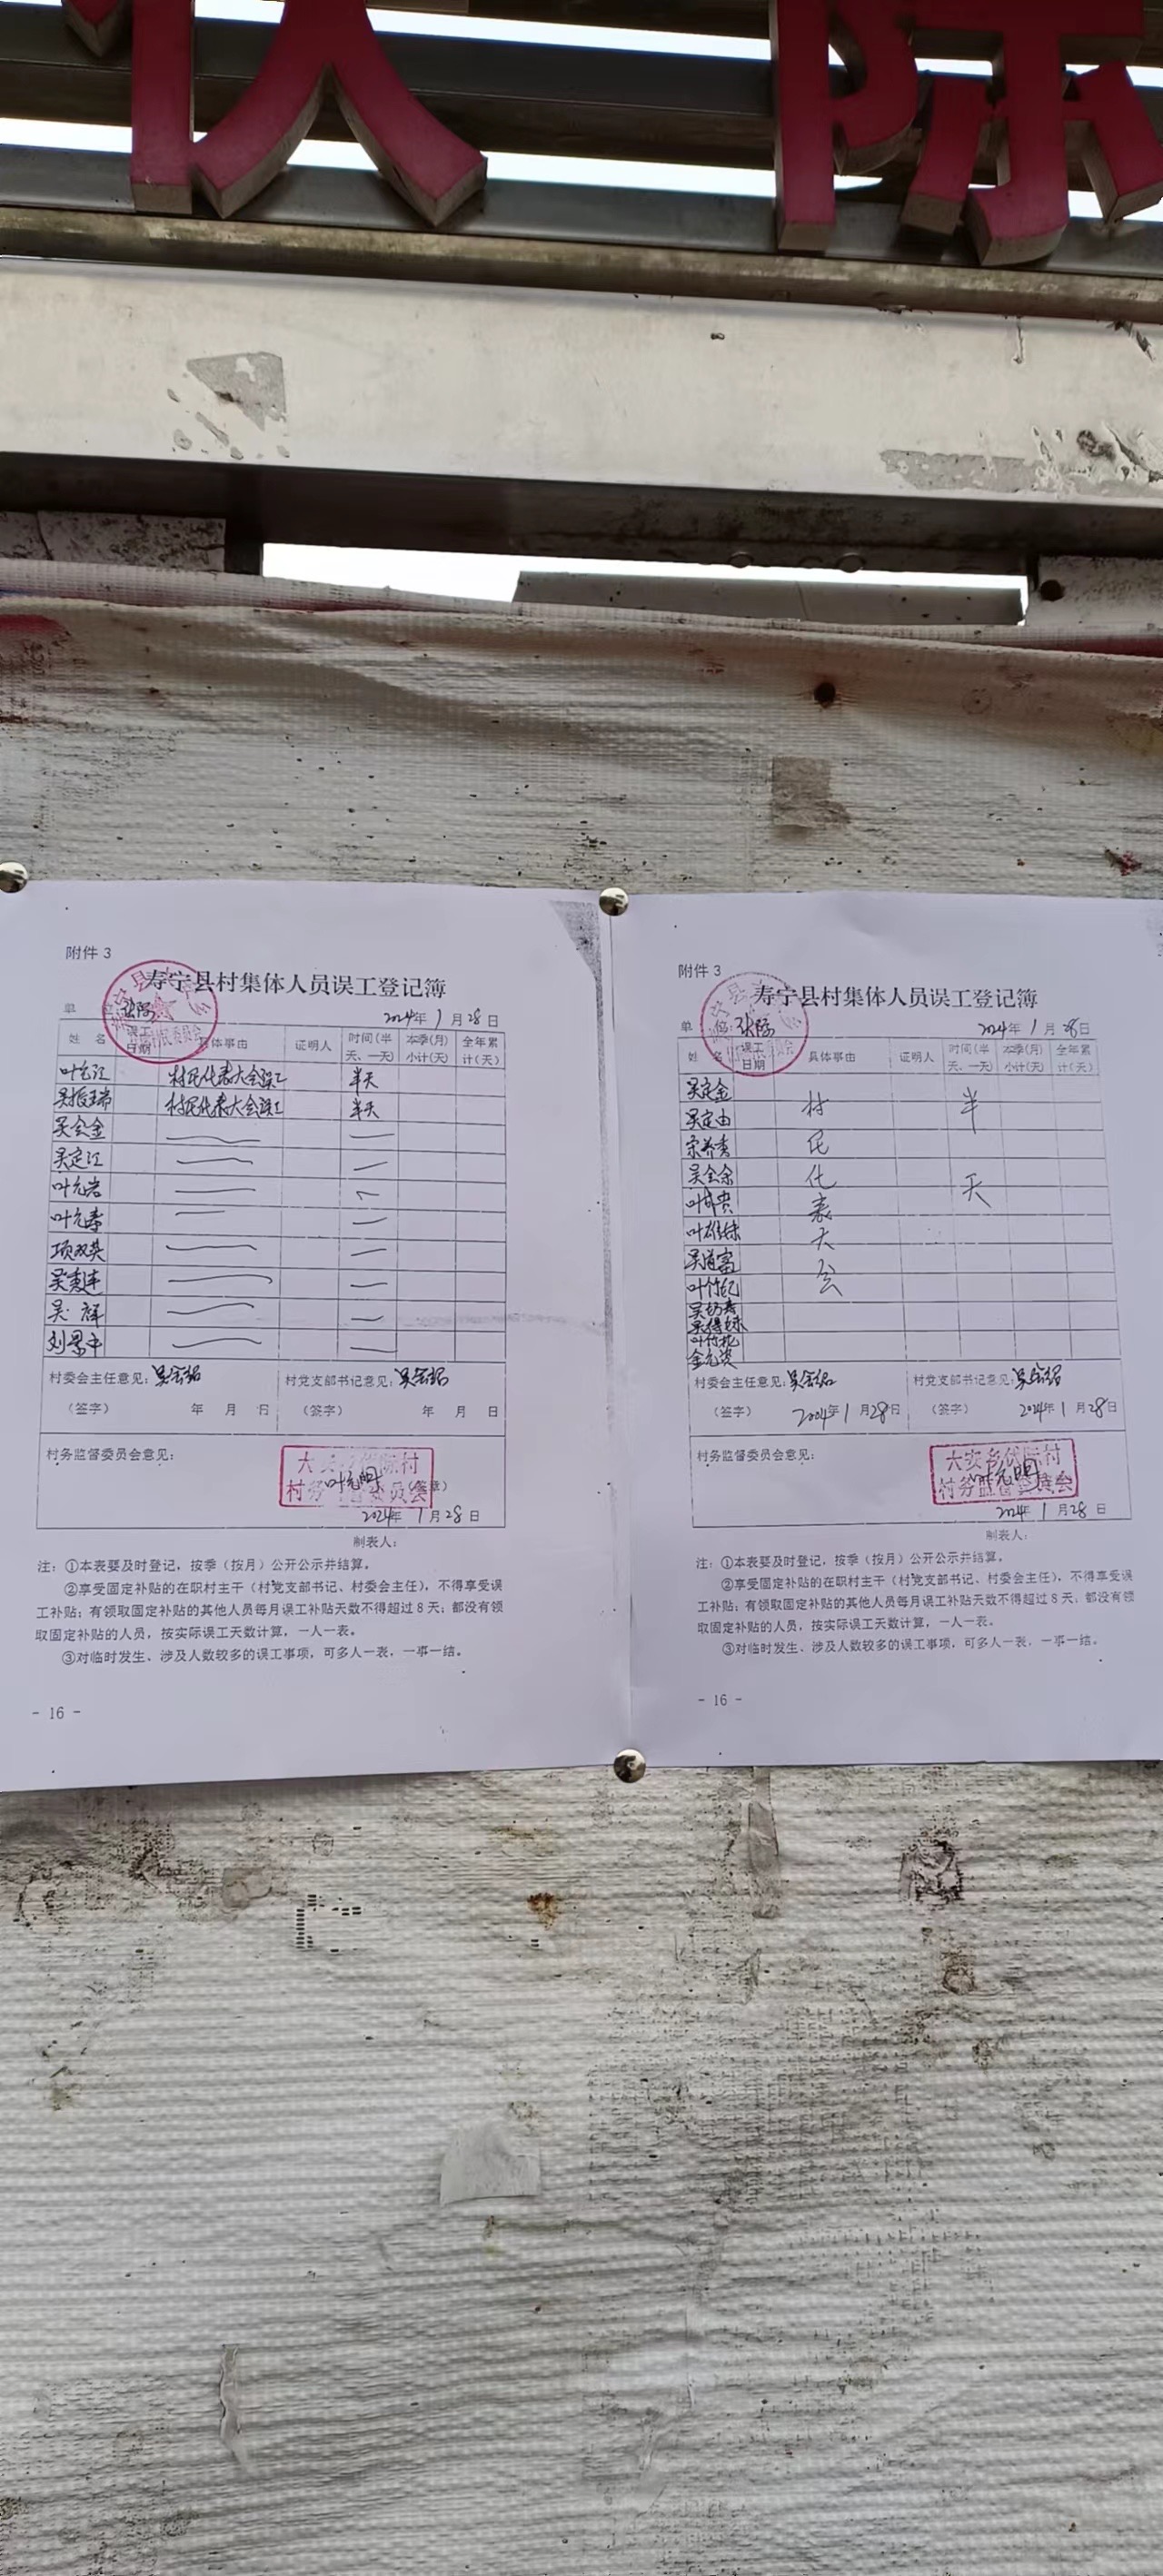 伏际
附件 3
寿宁县村集体人员误工登记簿
单 位 伏际
2024年 1 月 28 日
姓 名 误工日期 具体事由 证明人 时间(半天、一天) 本季(月)小计(天) 全年累计(天)
村民代表大会误工 半天
吴振瑞 村民代表大会误工 半天
吴会金
吴定江
叶允岩
叶允寿
项双英
吴 祥
村委会主任意见: 村党支部书记意见:
(签字) 年 月 日 (签字) 年 月 日
村务监督委员会意见:
叶允明 (签章)
2024年 1 月 28 日
制表人:
注: ①本表要及时登记，按季（按月）公开公示并结算。
②享受固定补贴的在职村主干（村党支部书记、村委会主任），不得享受误
工补贴；有领取固定补贴的其他人员每月误工补贴天数不得超过 8 天；都没有领
取固定补贴的人员，按实际误工天数计算，一人一表。
③对临时发生、涉及人数较多的误工事项，可多人一表，一事一结。
- 16 -
附件 3
寿宁县村集体人员误工登记簿
单 位: 伏际
2024年 1 月 28日
姓 名 误工日期 具体事由 证明人 时间(半天、一天) 本季(月)小计(天) 全年累计(天)
吴定金
吴定由
吴会余
吴道富
叶竹纪
村民代表大会
半天
村委会主任意见: 村党支部书记意见:
(签字) 2004年 1 月28日 (签字) 2024年 1 月28日
村务监督委员会意见:
大安乡伏际村
村务监督委员会
叶允明
2024年 1 月 28 日
制表人:
注: ①本表要及时登记，按季（按月）公开公示并结算。
②享受固定补贴的在职村主干（村党支部书记、村委会主任），不得享受误
工补贴；有领取固定补贴的其他人员每月误工补贴天数不得超过 8 天；都没有领
取固定补贴的人员，按实际误工天数计算，一人一表。
③对临时发生、涉及人数较多的误工事项，可多人一表，一事一结。
- 16 -